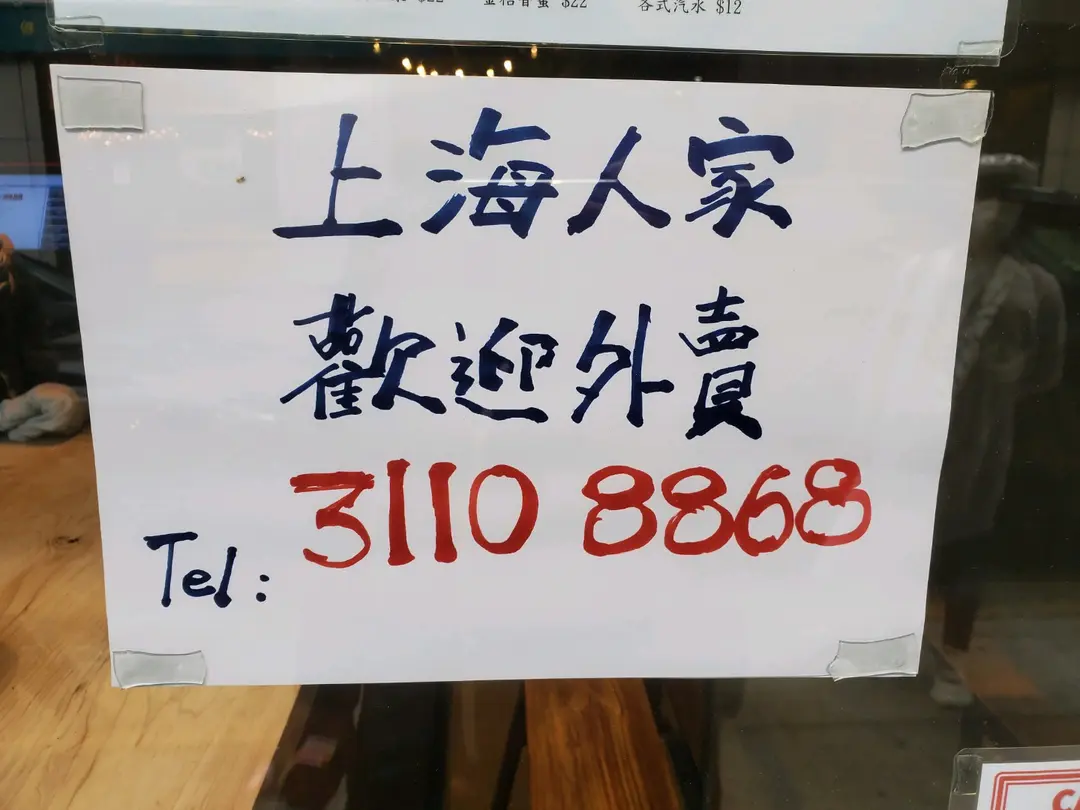 $22 金桔香蜜 $22 各式汽水 $12
上海人家
歡迎外賣
3110 8868
Tel: